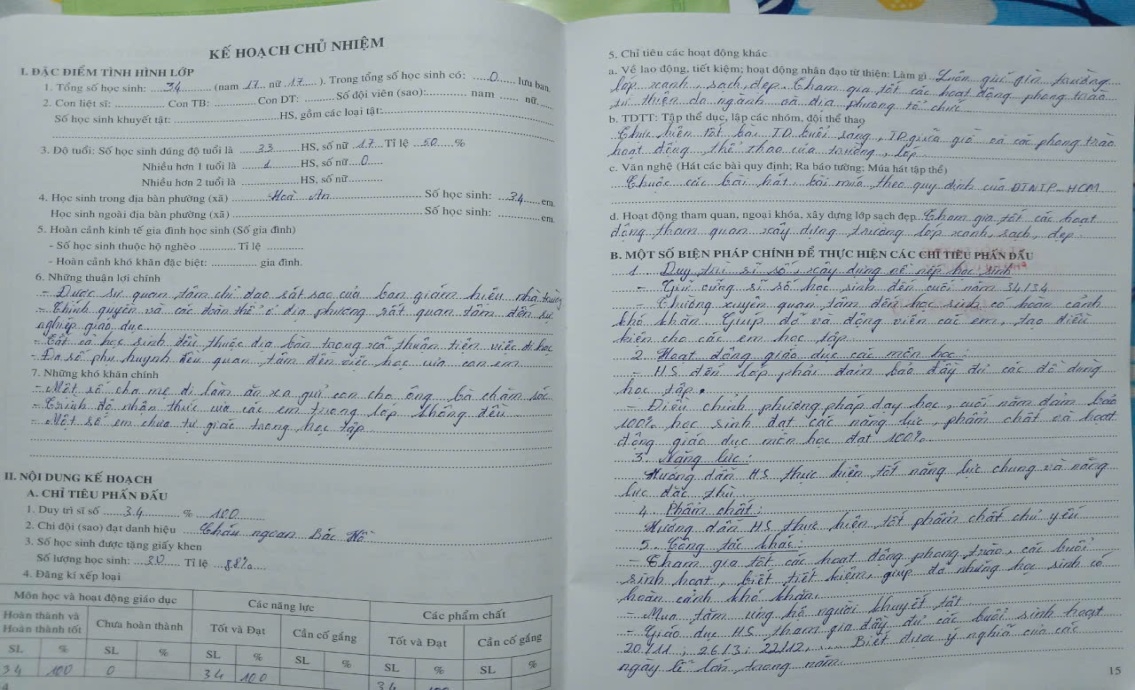 KẾ HOẠCH CHỦ NHIỆM
I. ĐẶC ĐIỂM TÌNH HÌNH LỚP
1. Tổng số học sinh: 34 (nam 17 nữ 17). Trong tổng số học sinh có: 0 lưu ban.
2. Con liệt sĩ: Con TB: Con DT: Số đội viên (sao): nam nữ
Số học sinh khuyết tật: HS, gồm các loại tật:
3. Độ tuổi: Số học sinh đúng độ tuổi là 33 HS, số nữ 17 Tỉ lệ 50 %
Nhiều hơn 1 tuổi là 1 HS, số nữ 0
Nhiều hơn 2 tuổi là HS, số nữ
4. Học sinh trong địa bàn phường (xã) Hoà An Số học sinh: 34 em.
Học sinh ngoài địa bàn phường (xã) Số học sinh: em.
5. Hoàn cảnh kinh tế gia đình học sinh (Số gia đình)
- Số học sinh thuộc hộ nghèo Tỉ lệ
- Hoàn cảnh khó khăn đặc biệt: gia đình.
6. Những thuận lợi chính
- Được sự quan tâm chỉ đạo sát sao của ban giám hiệu nhà trường
- Chính quyền và các đoàn thể ở địa phương rất quan tâm đến sự
nghiệp giáo dục
- Tất cả học sinh đều thuộc địa bàn trong xã thuận tiện việc đi học
- Đa số phụ huynh đều quan tâm đến việc học của con em
7. Những khó khăn chính
- Một số cha mẹ đi làm ăn xa gửi con cho ông bà chăm sóc
- Trình độ nhận thức của các em trong lớp không đều
- Một số em chưa tự giác trong học tập
II. NỘI DUNG KẾ HOẠCH
A. CHỈ TIÊU PHẤN ĐẤU
1. Duy trì sĩ số 34 % 100
2. Chi đội (sao) đạt danh hiệu Cháu ngoan Bác Hồ
3. Số học sinh được tặng giấy khen
Số lượng học sinh: 30 Tỉ lệ 88%
4. Đăng kí xếp loại
Môn học và hoạt động giáo dục Các năng lực Các phẩm chất
Hoàn thành và Hoàn thành tốt Chưa hoàn thành Tốt và Đạt Cần cố gắng Tốt và Đạt Cần cố gắng
SL % SL % SL % SL % SL % SL %
34 100 0 34 100 34 100
5. Chỉ tiêu các hoạt động khác
a. Về lao động, tiết kiệm; hoạt động nhân đạo từ thiện: Làm gì Luôn giữ gìn trường
lớp xanh, sạch, đẹp. Tham gia tốt các hoạt động phong trào
từ thiện do ngành và địa phương tổ chức
b. TDTT: Tập thể dục, lập các nhóm, đội thể thao
Thực hiện tốt bài TD buổi sáng, TD giữa giờ và các phong trào
hoạt động thể thao của trường, lớp
c. Văn nghệ (Hát các bài quy định; Ra báo tường; Múa hát tập thể)
Thuộc các bài hát, bài múa theo quy định của ĐTNTP HCM
d. Hoạt động tham quan, ngoại khóa, xây dựng lớp sạch đẹp Tham gia tốt các hoạt
động tham quan xây dựng trường lớp xanh, sạch, đẹp
B. MỘT SỐ BIỆN PHÁP CHÍNH ĐỂ THỰC HIỆN CÁC CHỈ TIÊU PHẤN ĐẤU
1. Duy trì sĩ số, xây dựng nề nếp học sinh
- Giữ vững sĩ số học sinh đến cuối năm 34/34
- Thường xuyên quan tâm đến học sinh có hoàn cảnh
khó khăn. Giúp đỡ và động viên các em, tạo điều
kiện cho các em học tập
2. Hoạt động giáo dục các môn học:
- HS đến lớp phải đảm bảo đầy đủ các đồ dùng
học tập.
- Điều chỉnh phương pháp dạy học, cuối năm đảm bảo
100% học sinh đạt các năng lực, phẩm chất và hoạt
động giáo dục môn học đạt 100%
3. Năng lực:
Hướng dẫn HS thực hiện tốt năng lực chung và năng
lực đặc thù
4. Phẩm chất:
Hướng dẫn HS thực hiện tốt phẩm chất chủ yếu
5. Công tác khác:
- Tham gia tốt các hoạt động phong trào, các buổi
sinh hoạt, biết tiết kiệm, giúp đỡ những học sinh có
hoàn cảnh khó khăn.
- Mua tăm ủng hộ người khuyết tật
- Giáo dục HS tham gia đầy đủ các buổi sinh hoạt
20/11, 26/3, 22/12, ... Biết được ý nghĩa của các
ngày lễ lớn trong năm.
15